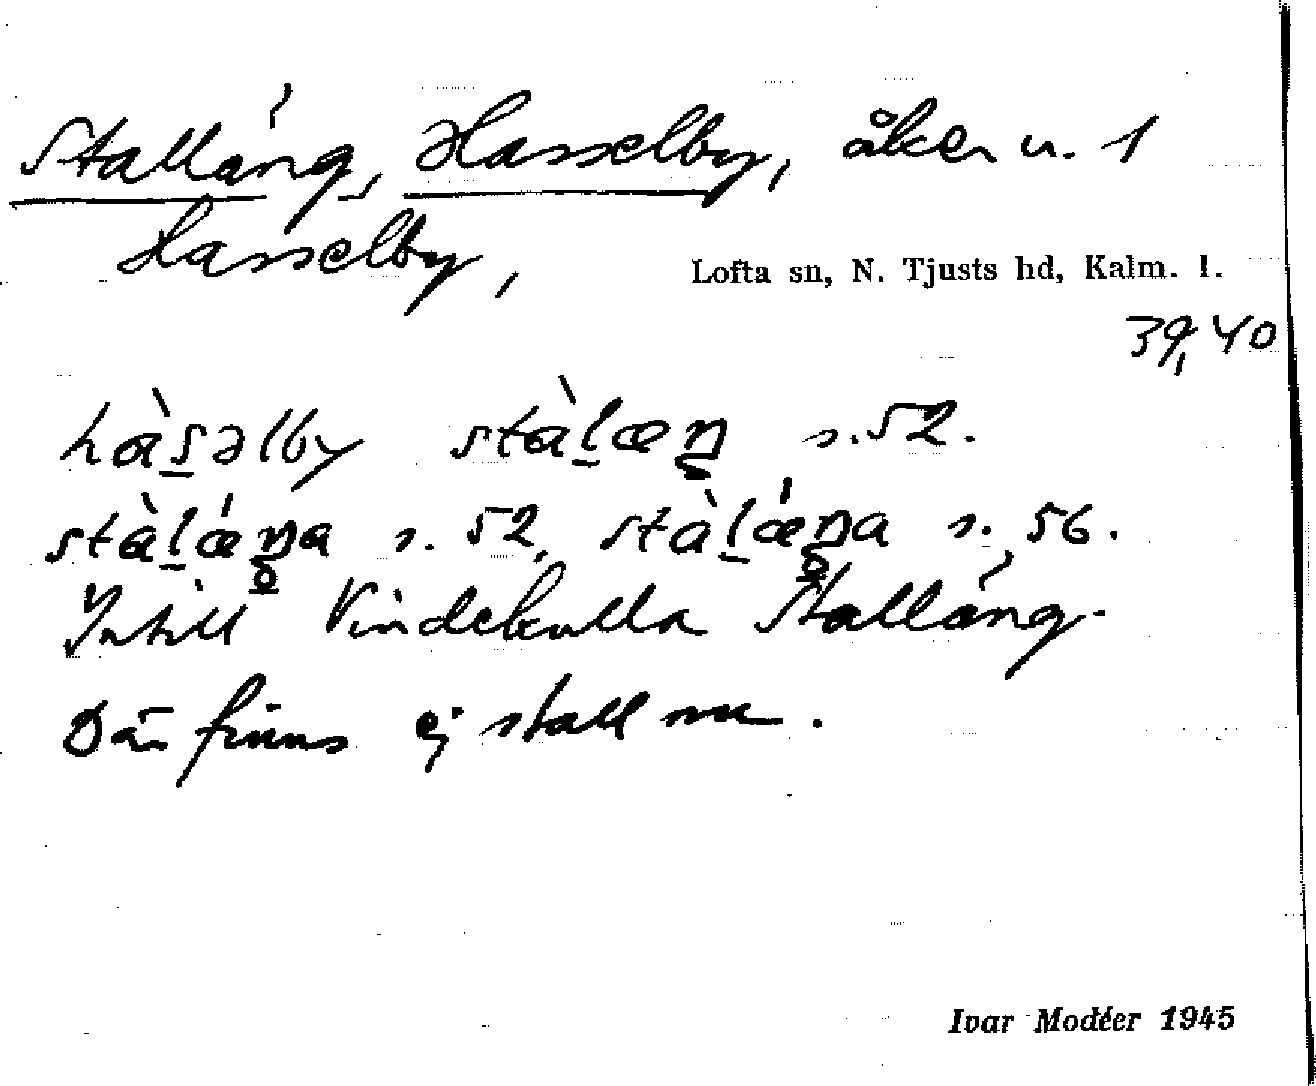 Stalläng, Hasselby, åker u. 1
Hasselby,
Lofta sn, N. Tjusts hd, Kalm. l.
39, 40
hàs̲əlby stàl̲æŋ s. 52.
stàl̲ǽŋa s. 52, stàl̲ǽŋa s. 56.
Intill Vindekulla Stalläng.
Där finns ej stall nu.
Ivar Modéer 1945